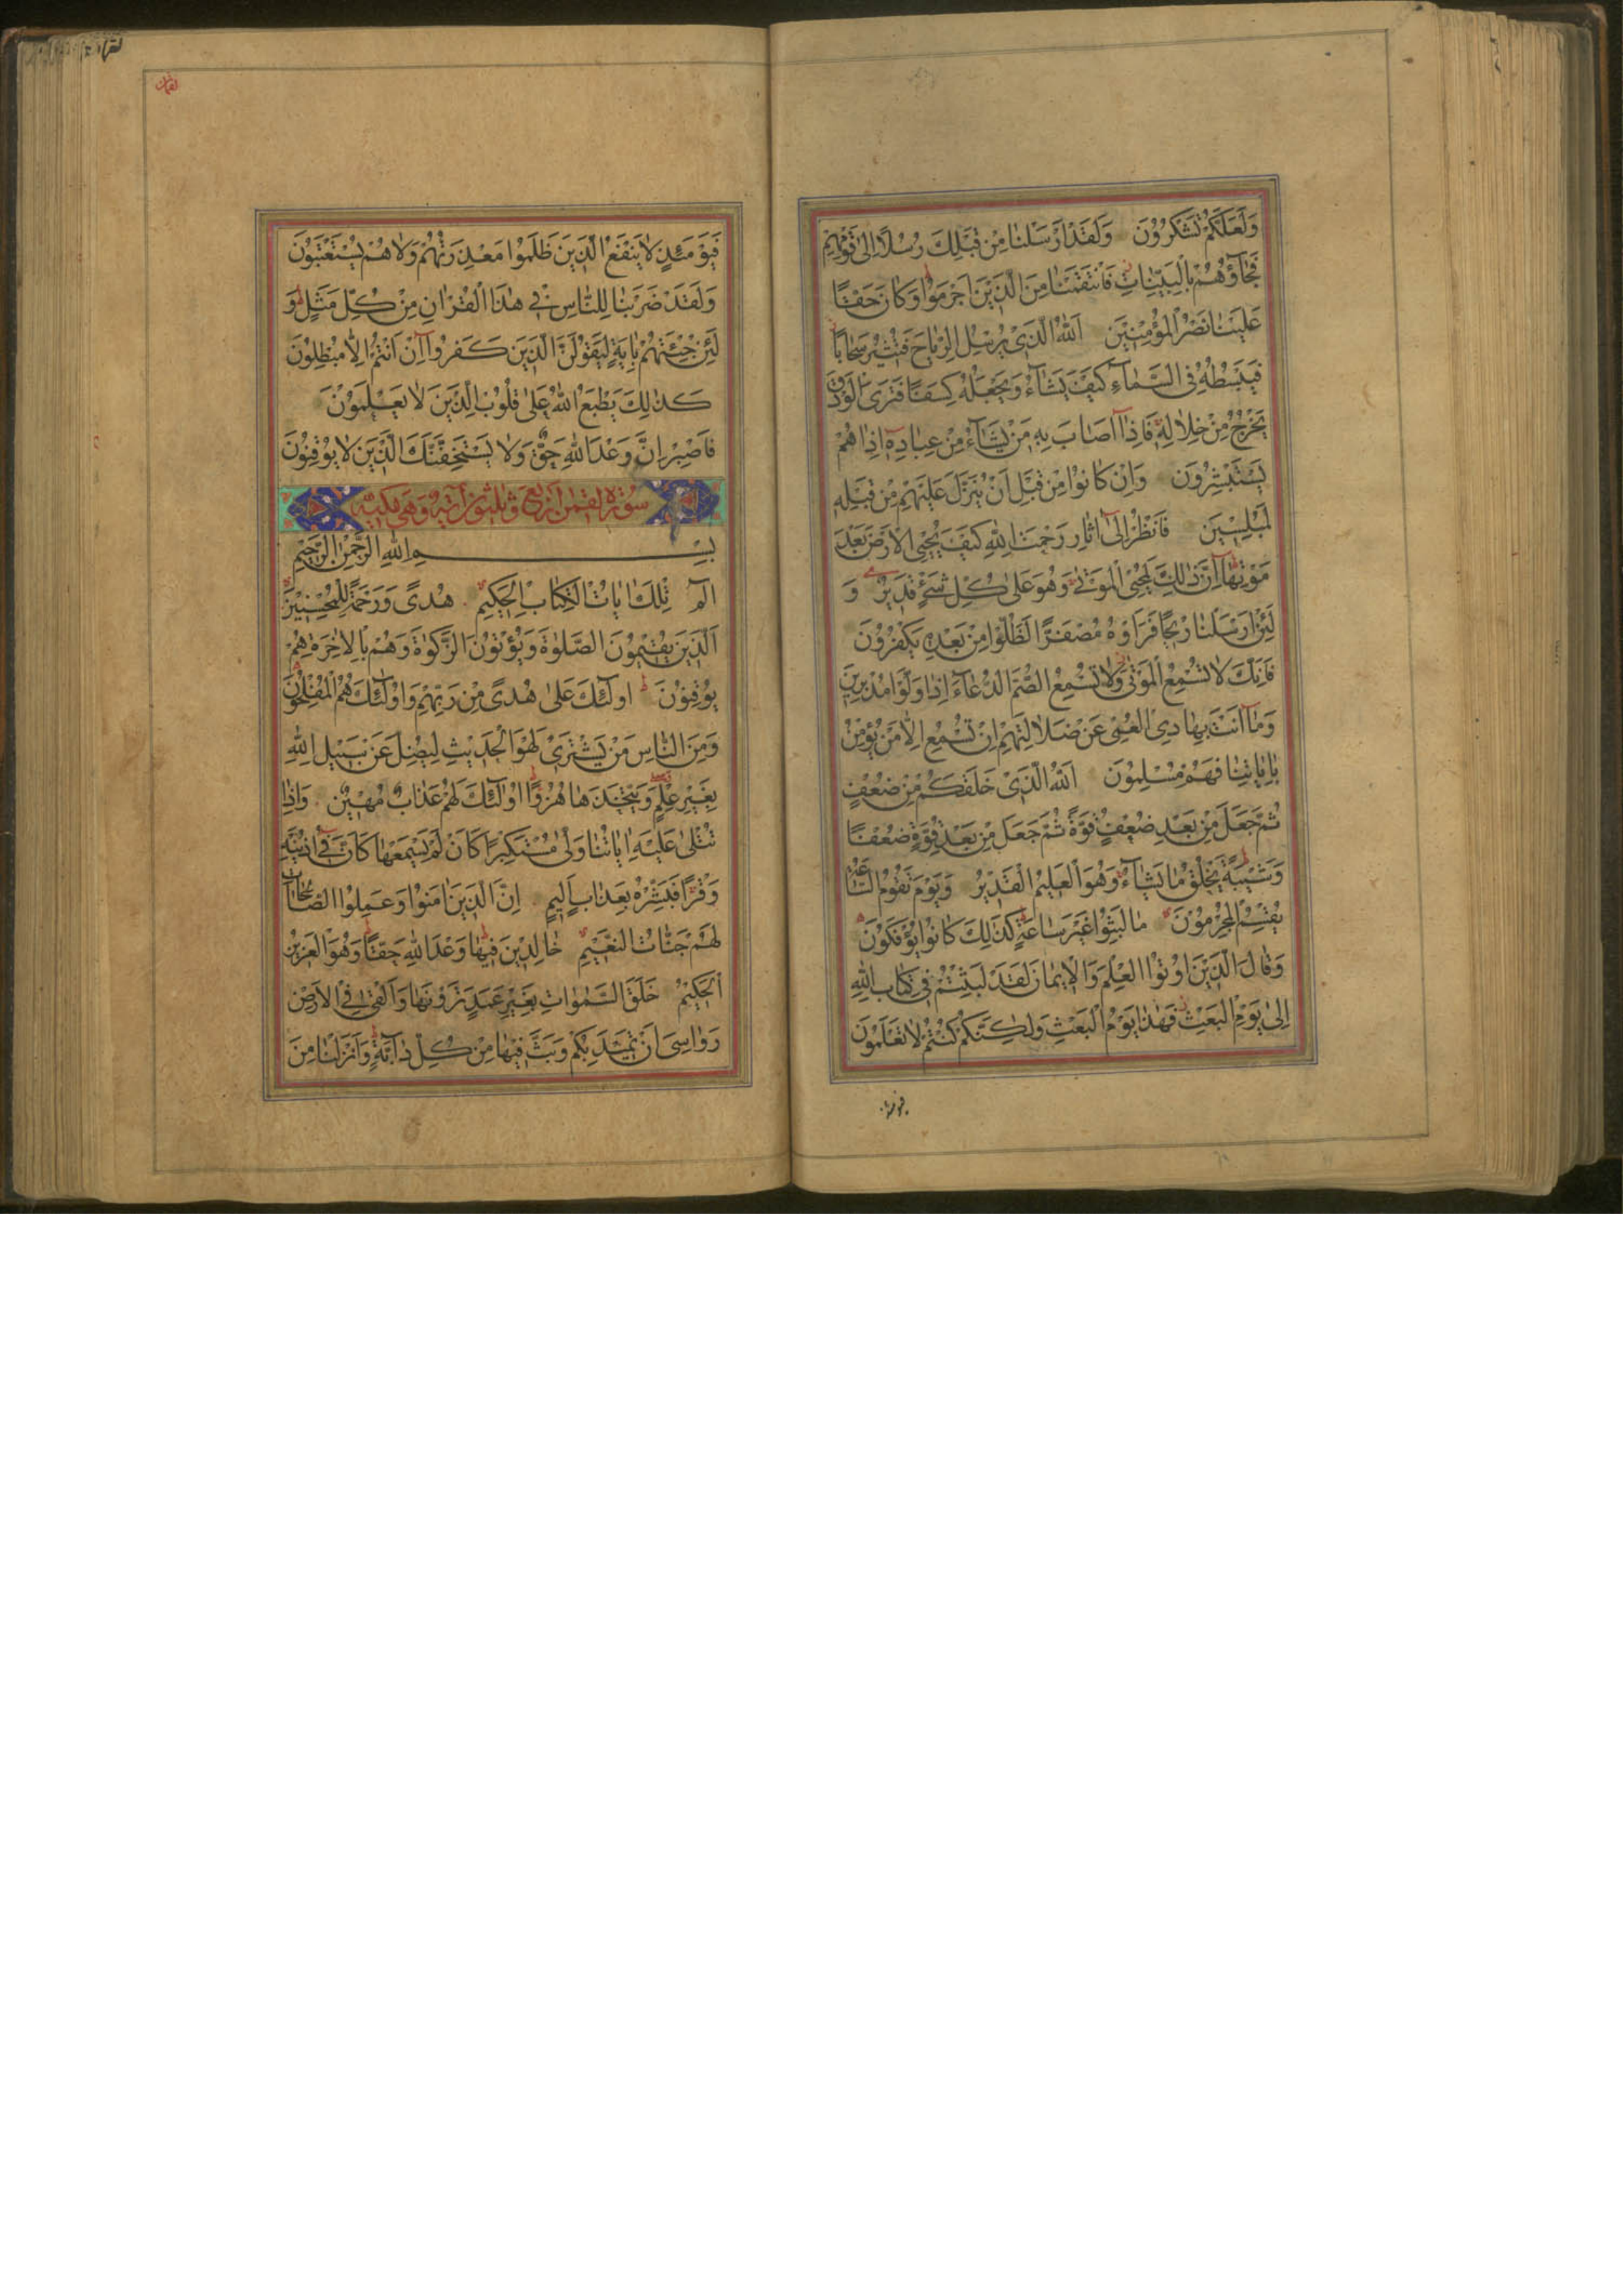 وَلَعَلَّكُمْ تَشْكُرُوُنَ وَلَقَدْ اَرْسَلْنَا مِنْ قَبْلِكَ رُسُلًا اِلىٰ قَوْمِهِمْ
فَجَآؤُهُمْ بِالْبَيِّنَاتِ فَانْتَقَمْنَا مِنَ الَّذِيْنَ اَجْرَمُوْا وَكَانَ حَقًّا
عَلَيْنَا نَصْرُ الْمُؤْمِنِيْنَ اَللّٰهُ الَّذِىْ يُرْسِلُ الرِّيَاحَ فَتُثِيْرُ سَحَابًا
فَيَبْسُطُهُ فِى السَّمَآءِ كَيْفَ يَشَآءُ وَيَجْعَلُهُ كِسَفًا فَتَرَى الْوَدْقَ
يَخْرُجُ مِنْ خِلَالِهِ فَاِذَا اَصَابَ بِهِ مَنْ يَشَآءُ مِنْ عِبَادِهِ اِذَا هُمْ
يَسْتَبْشِرُوْنَ وَاِنْ كَانُوْا مِنْ قَبْلِ اَنْ يُنَزَّلَ عَلَيْهِمْ مِنْ قَبْلِهِ
لَمُبْلِسِيْنَ فَانْظُرْ اِلىٰ اٰثَارِ رَحْمَتِ اللّٰهِ كَيْفَ يُحْيِى الْاَرْضَ بَعْدَ
مَوْتِهَا اِنَّ ذٰلِكَ لَمُحْيِى الْمَوْتٰى وَهُوَ عَلىٰ كُلِّ شَىْءٍ قَدِيْرٌ وَ
لَئِنْ اَرْسَلْنَا رِيْحًا فَرَاَوْهُ مُصْفَرًّا لَظَلُّوْا مِنْ بَعْدِهِ يَكْفُرُوْنَ
فَاِنَّكَ لَا تُسْمِعُ الْمَوْتٰى وَلَا تُسْمِعُ الصُّمَّ الدُّعَآءَ اِذَا وَلَّوْا مُدْبِرِيْنَ
وَمَا اَنْتَ بِهَادِى الْعُمْىِ عَنْ ضَلَالَتِهِمْ اِنْ تُسْمِعُ اِلَّا مَنْ يُؤْمِنُ
بِاٰيَاتِنَا فَهُمْ مُسْلِمُوْنَ اَللّٰهُ الَّذِىْ خَلَقَكُمْ مِنْ ضَعْفٍ
ثُمَّ جَعَلَ مِنْ بَعْدِ ضَعْفٍ قُوَّةً ثُمَّ جَعَلَ مِنْ بَعْدِ قُوَّةٍ ضَعْفًا
وَشَيْبَةً يَخْلُقُ مَا يَشَآءُ وَهُوَ الْعَلِيْمُ الْقَدِيْرُ وَيَوْمَ تَقُوْمُ السَّاعَةُ
يُقْسِمُ الْمُجْرِمُوْنَ مَا لَبِثُوْا غَيْرَ سَاعَةٍ كَذٰلِكَ كَانُوْا يُؤْفَكُوْنَ
وَقَالَ الَّذِيْنَ اُوْتُوا الْعِلْمَ وَالْاِيْمَانَ لَقَدْ لَبِثْتُمْ فِى كِتَابِ اللّٰهِ
اِلىٰ يَوْمِ الْبَعْثِ فَهٰذَا يَوْمُ الْبَعْثِ وَلٰكِنَّكُمْ كُنْتُمْ لَا تَعْلَمُوْنَ
فيومئذ
لقمان
فَيَوْمَئِذٍ لَا يَنْفَعُ الَّذِيْنَ ظَلَمُوْا مَعْذِرَتُهُمْ وَلَا هُمْ يُسْتَعْتَبُوْنَ
وَلَقَدْ ضَرَبْنَا لِلنَّاسِ فِى هٰذَا الْقُرْاٰنِ مِنْ كُلِّ مَثَلٍ وَ
لَئِنْ جِئْتَهُمْ بِاٰيَةٍ لَيَقُوْلَنَّ الَّذِيْنَ كَفَرُوْآ اِنْ اَنْتُمْ اِلَّا مُبْطِلُوْنَ
كَذٰلِكَ يَطْبَعُ اللّٰهُ عَلىٰ قُلُوْبِ الَّذِيْنَ لَا يَعْلَمُوْنَ
فَاصْبِرْ اِنَّ وَعْدَ اللّٰهِ حَقٌّ وَلَا يَسْتَخِفَّنَّكَ الَّذِيْنَ لَا يُوْقِنُوْنَ
سُوْرَة لقمٰن اربع وثلثون آية وهى مكية
بِسْمِ اللّٰهِ الرَّحْمٰنِ الرَّحِيْمِ
الٓمٓ تِلْكَ اٰيَاتُ الْكِتَابِ الْحَكِيْمِ هُدًى وَرَحْمَةً لِلْمُحْسِنِيْنَ
اَلَّذِيْنَ يُقِيْمُوْنَ الصَّلٰوةَ وَيُؤْتُوْنَ الزَّكٰوةَ وَهُمْ بِالْاٰخِرَةِ هُمْ
يُوْقِنُوْنَ اُولٰٓئِكَ عَلىٰ هُدًى مِنْ رَبِّهِمْ وَاُولٰٓئِكَ هُمُ الْمُفْلِحُوْنَ
وَمِنَ النَّاسِ مَنْ يَشْتَرِىْ لَهْوَ الْحَدِيْثِ لِيُضِلَّ عَنْ سَبِيْلِ اللّٰهِ
بِغَيْرِ عِلْمٍ وَيَتَّخِذَهَا هُزُوًا اُولٰٓئِكَ لَهُمْ عَذَابٌ مُهِيْنٌ وَاِذَا
تُتْلىٰ عَلَيْهِ اٰيَاتُنَا وَلّٰى مُسْتَكْبِرًا كَاَنْ لَمْ يَسْمَعْهَا كَاَنَّ فِى اُذُنَيْهِ
وَقْرًا فَبَشِّرْهُ بِعَذَابٍ اَلِيْمٍ اِنَّ الَّذِيْنَ اٰمَنُوْا وَعَمِلُوا الصَّالِحَاتِ
لَهُمْ جَنَّاتُ النَّعِيْمِ خَالِدِيْنَ فِيْهَا وَعْدَ اللّٰهِ حَقًّا وَهُوَ الْعَزِيْزُ
الْحَكِيْمُ خَلَقَ السَّمٰوَاتِ بِغَيْرِ عَمَدٍ تَرَوْنَهَا وَاَلْقٰى فِى الْاَرْضِ
رَوَاسِىَ اَنْ تَمِيْدَ بِكُمْ وَبَثَّ فِيْهَا مِنْ كُلِّ دَآبَّةٍ وَاَنْزَلْنَا مِنَ